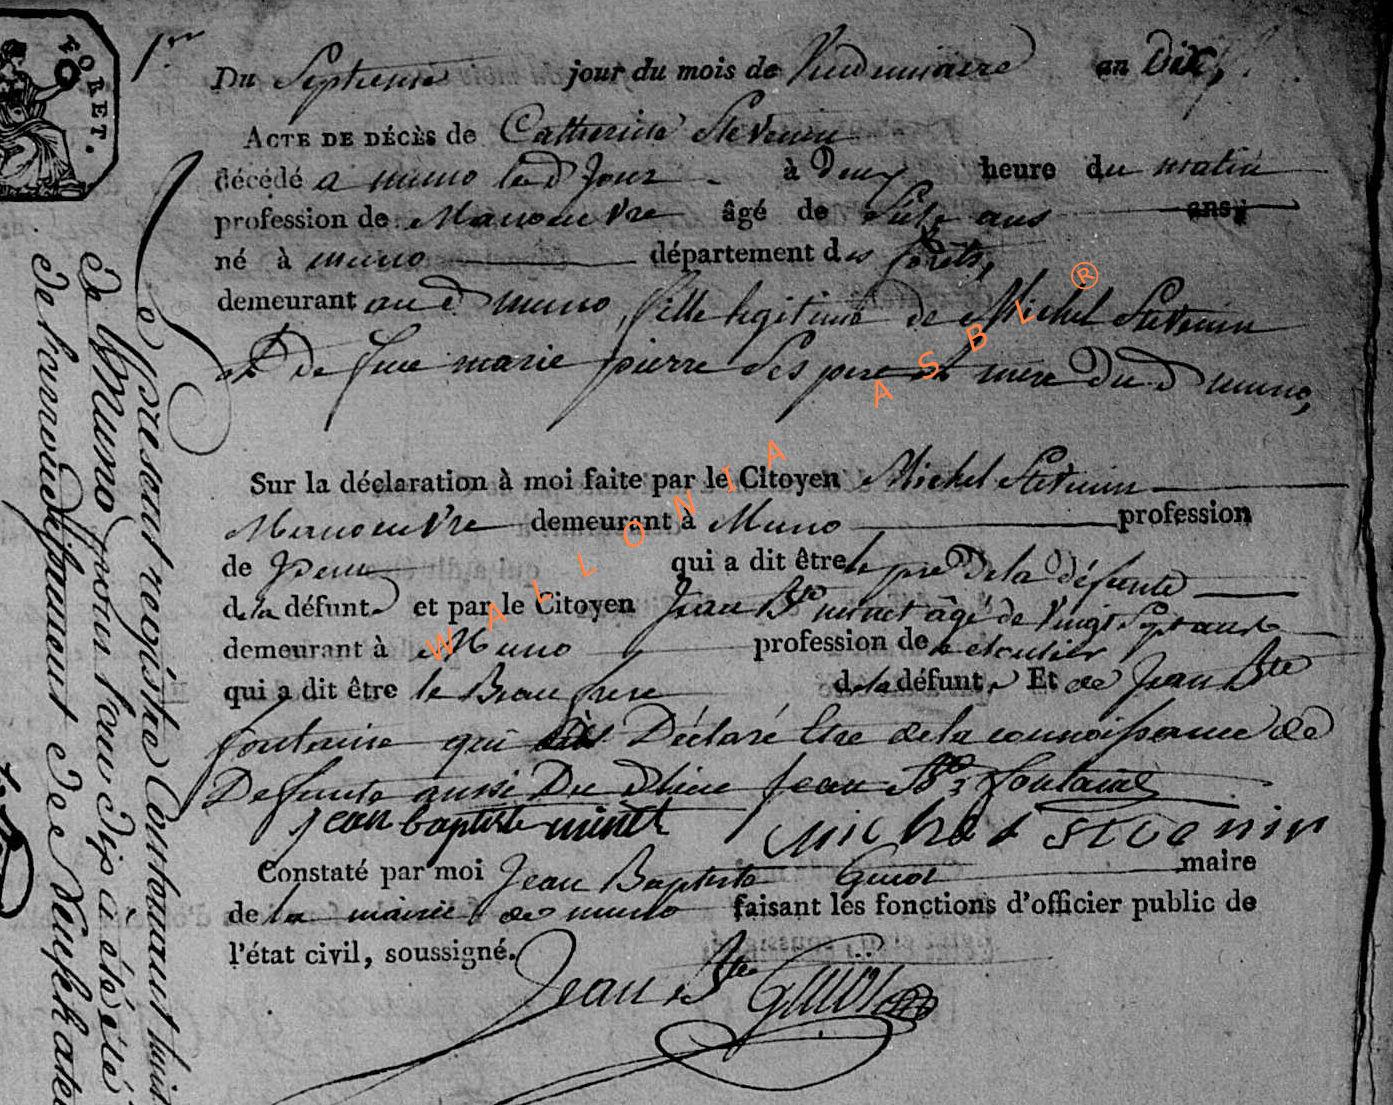 FORET.
1er
Du Septieme jour du mois de Vendemiaire an Dix,
ACTE DE DÉCÈS de Catherine Stevenin
décédé a muno led Jour à Deux heure du matin
profession de Manoeuvre âgé de ans ans,
né à muno département des forêts,
demeurant aud muno, fille legitime de Michel Stevenin
et De feue marie pierre ses pere et mere Dud muno,
Sur la déclaration à moi faite par le Citoyen Michel Stevenin
Manoeuvre demeurant à Muno profession
de qui a dit être le pere De la défunte
de la défunte et par le Citoyen Jean Bte minet âgé de vingt Sept ans
demeurant à Muno profession de
qui a dit être le Beau frere de la défunte Et de Jean Bte
fontaine qui à Déclaré Etre de la connoissance de
Defunte aussi Du d lieu Jean Bte fontaine
jean baptiste minet michel stevenin
Constaté par moi Jean Baptiste Guiot maire
de la mairie de muno faisant les fonctions d'officier public de
l'état civil, soussigné.
Jean Bte Guiot
Le present registre Contenant huit
de Muno pour l'an dix a été
de Département de Neufchateau
WALLONIA ASBL ®